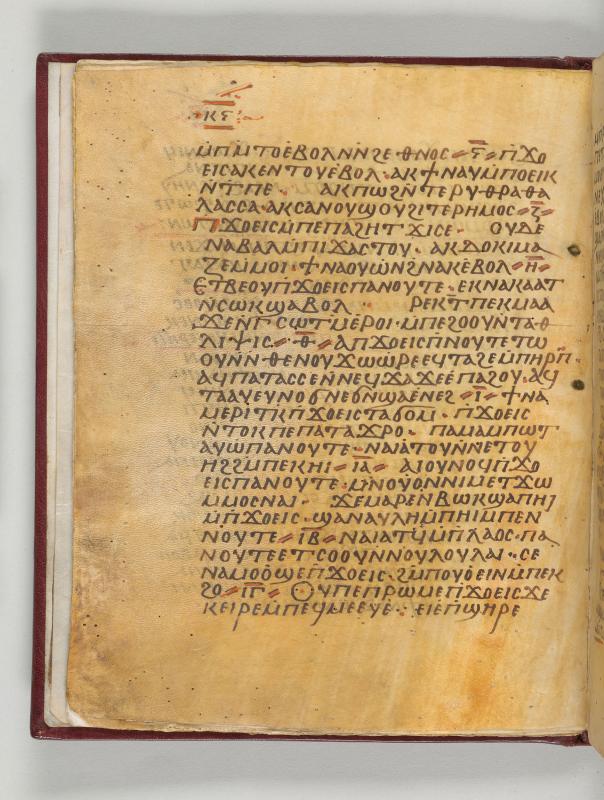 ⲕⲋ
ⲙ̄ⲡⲙⲧⲟⲉⲃⲟⲗⲛ̄ⲛϩⲉⲑⲛⲟⲥ ⲋ ⲡ̄ϫⲟ
ⲉⲓⲥⲁⲕⲉⲛⲧⲟⲩⲉⲃⲟⲗ· ⲁⲕϯⲛⲁⲩⲙ̄ⲡⲟⲉⲓⲕ
ⲛ̄ⲧⲡⲉ ⲁⲕⲡⲱϩⲛ̄ⲧⲉⲣⲩⲑⲣⲁⲑⲁ
ⲗⲁⲥⲥⲁ· ⲁⲕⲥⲁⲛⲟⲩϣⲟⲩϩⲓⲧⲉⲣⲏⲙⲟⲥ ⲍ
ⲡ̄ϫⲟⲉⲓⲥⲙ̄ⲡⲉⲡⲁϩⲏⲧϫⲓⲥⲉ· ⲟⲩⲇⲉ
ⲛⲁⲃⲁⲗⲙ̄ⲡⲓϫⲁⲥⲧⲟⲩ· ⲁⲕⲇⲟⲕⲓⲙⲁ
ⲍⲉⲙ̄ⲙⲟⲓ· ϯⲛⲁⲟⲩⲱⲛϩⲛⲁⲕⲉⲃⲟⲗ ⲏ
ⲉⲧⲃⲉⲟⲩⲡ̄ϫⲟⲉⲓⲥⲡⲁⲛⲟⲩⲧⲉ· ⲉⲕⲛⲁⲕⲁⲁⲧ
ⲛ̄ⲥⲱⲕϣⲁⲃⲟⲗ ⲣⲉⲕⲧⲡⲉⲕⲙⲁⲁ
ϫⲉⲛⲅⲥⲱⲧⲙ̄ⲉⲣⲟⲓ· ⲙ̄ⲡⲉϩⲟⲟⲩⲛ̄ⲧⲁⲑ
ⲗⲓⲯⲓⲥ ⲑ ⲁⲡϫⲟⲉⲓⲥⲡⲛⲟⲩⲧⲉⲧⲱ
ⲟⲩⲛⲛ̄ⲑⲉⲛⲟⲩϫⲱⲱⲣⲉⲉϥⲧⲁϩⲉⲙ̄ⲡⲏⲣⲡ̄·
ⲁϥⲡⲁⲧⲁⲥⲥⲉⲛ̄ⲛⲉϥϫⲁϫⲉⲉⲡⲁϩⲟⲩ· ⲁϥ
ⲧⲁⲁⲩⲉⲩⲛⲟϭⲛⲉϭⲛϣⲁⲉⲛⲉϩ ⲓ ϯⲛⲁ
ⲙⲉⲣⲓⲧⲕ̄ⲡ̄ϫⲟⲉⲓⲥⲧⲁϭⲟⲙ· ⲡ̄ϫⲟⲉⲓⲥ
ⲛ̄ⲧⲟⲕⲡⲉⲡⲁⲧⲁϫⲣⲟ· ⲡⲁⲙⲁⲙ̄ⲡⲱⲧ
ⲁⲩⲱⲡⲁⲛⲟⲩⲧⲉ· ⲛⲁⲓⲁⲧⲟⲩⲛ̄ⲛⲉⲧⲟⲩ
ⲏϩϩⲙ̄ⲡⲉⲕⲏⲓ ⲓⲁ ⲁⲓⲟⲩⲛⲟϥⲡ̄ϫⲟ
ⲉⲓⲥⲡⲁⲛⲟⲩⲧⲉ· ⲙ̄ⲛⲟⲩⲟⲛⲛⲓⲙⲉⲧϫⲱ
ⲙ̄ⲙⲟⲥⲛⲁⲓ· ϫⲉⲙⲁⲣⲉⲛⲃⲱⲕϣⲁⲡⲏⲓ
ⲙ̄ⲡ̄ϫⲟⲉⲓⲥ· ϣⲁⲛⲁⲩⲗⲏⲙ̄ⲡⲏⲓⲙ̄ⲡⲉⲛ
ⲛⲟⲩⲧⲉ ⲓⲃ ⲛⲁⲓⲁⲧϥⲙ̄ⲡⲗⲁⲟⲥ· ⲡⲁ
ⲛⲟⲩⲧⲉⲉⲧⲥⲟⲟⲩⲛⲛⲟⲩⲗⲟⲩⲗⲁⲓ· ⲥⲉ
ⲛⲁⲙⲟⲟϣⲉⲡ̄ϫⲟⲉⲓⲥ· ϩⲙ̄ⲡⲟⲩⲟⲉⲓⲛⲙ̄ⲡⲉⲕ
ϩⲟ ⲓⲅ ⲟⲩⲡⲉⲡⲣⲱⲙⲉⲡ̄ϫⲟⲉⲓⲥϫⲉ
ⲕⲉⲓⲣⲉⲙ̄ⲡⲉϥⲙⲉⲉⲩⲉ· ⲉⲓⲉⲡ̄ϣⲏⲣⲉ